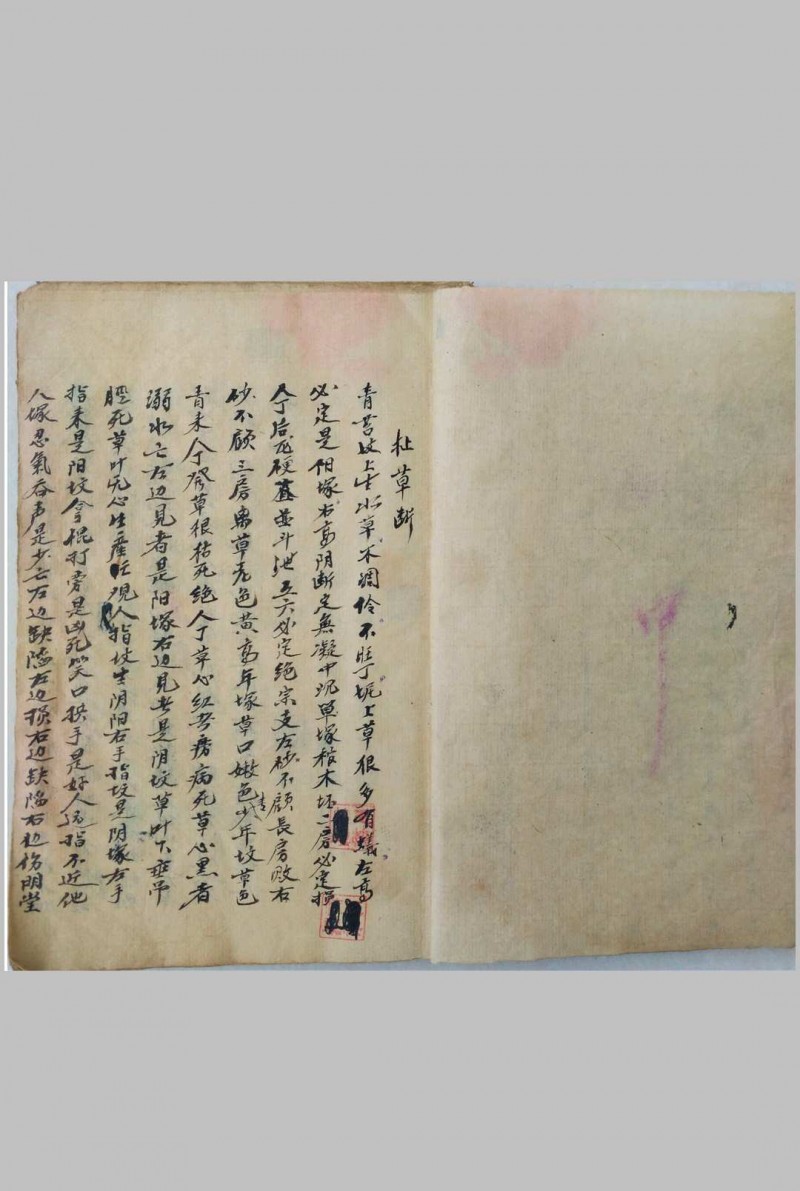 杜草断
青苔坟上生水草木凋伶不旺丁坭上草根多有蟻左高
必定是阳塚右高阴断定無凝中沉單塚棺木坏二房必定损
人丁后龙硬直並斗池五六必定绝宗支左砂不顧長房败右
砂不顧三房曳草尨色黄高年塚草口嫩色青少年坟草色
青禾人丁發草根枯死绝人丁草心红者痨病死草心黑者
溺水亡左边見者是阳塚右边見者是阴坟草叶下垂吊
脛死草叶无心生產任观人指坟生阴阳右手指坟是阴塚左手
指来是阳坟拿棍打旁是凶死笑口拱手是好人远指不近他
人塚忍氣吞声是少亡左边缺陷左边损右边缺陷右边伤明堂
甲